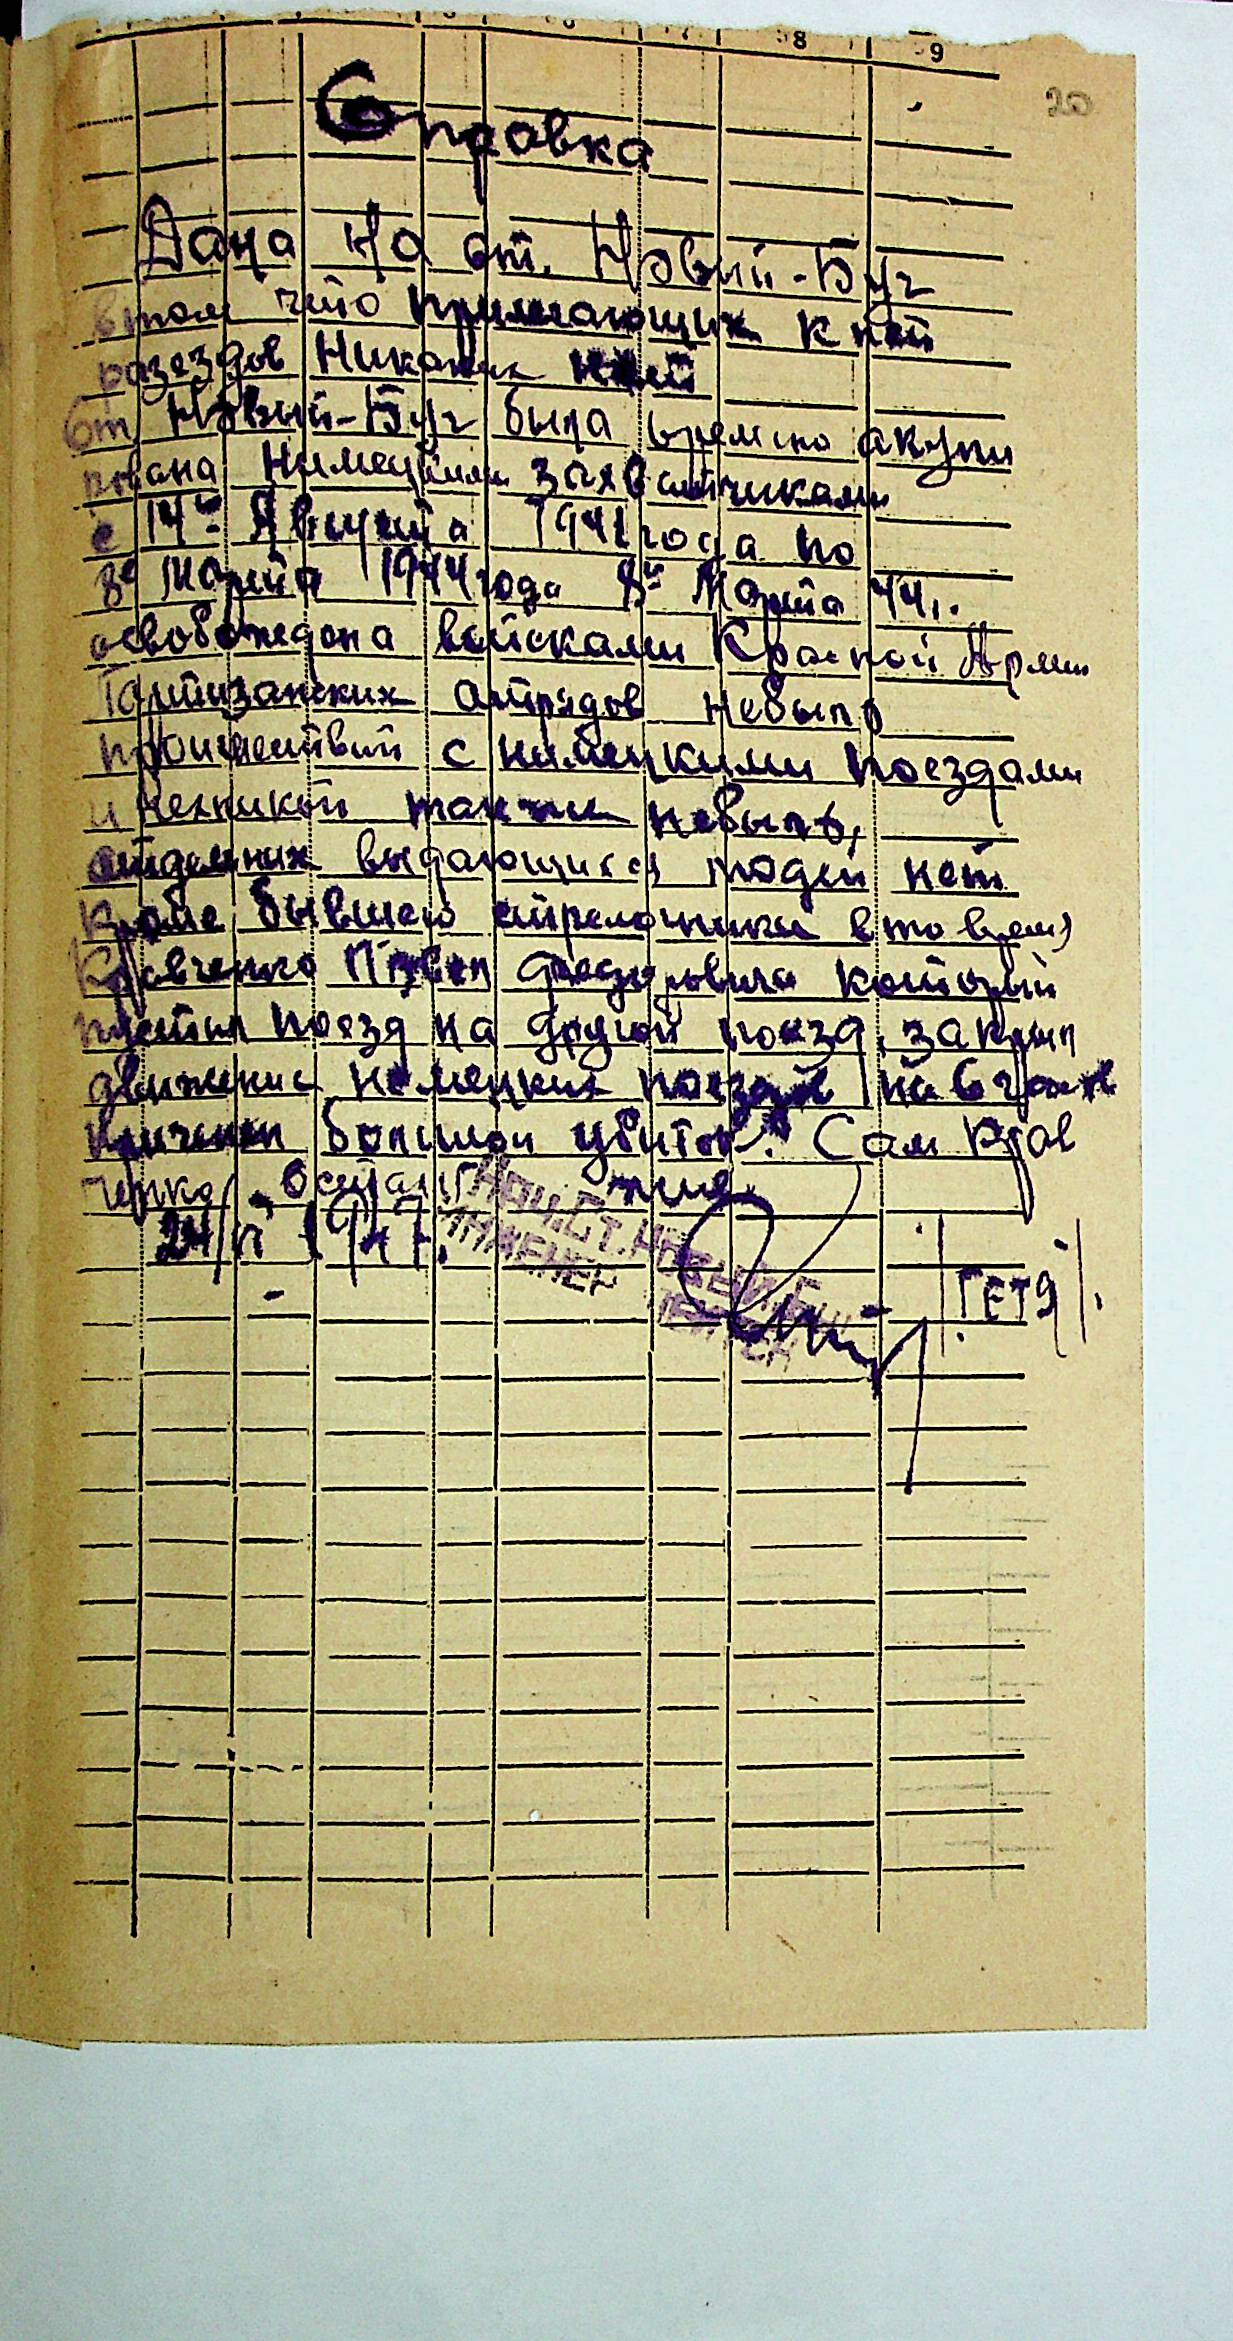 8 9
20
Справка
Дана на ст. Новый-Буг
в том что прилегающих к ней
разездов Никаких
Ст Новый-Буг была времено акупи
рована Немецкими захватчиками
с 14го Августа 1941 года по
8е Марта 1944 года 8го Марта 44 г.
освобождена войсками Красной Армии
Партизанских отрядов небыло
проишествий с немецкими поездами
и техникой также небыло,
отдельных выдающихся людей нет
Кроме бывшего стрелочника в то время
Кравченко Павел Федорович который
пустил поезд на другой поезд, закрыл
движение немецких поездов на 6 часов
причинен большой убиток. Сам Крав
ченко остался жив.
24/ 1947 г.
НАЧ. СТ. НОВЫЙ БУГ
ИНЖЕНЕР
/ГЕТЯ/.